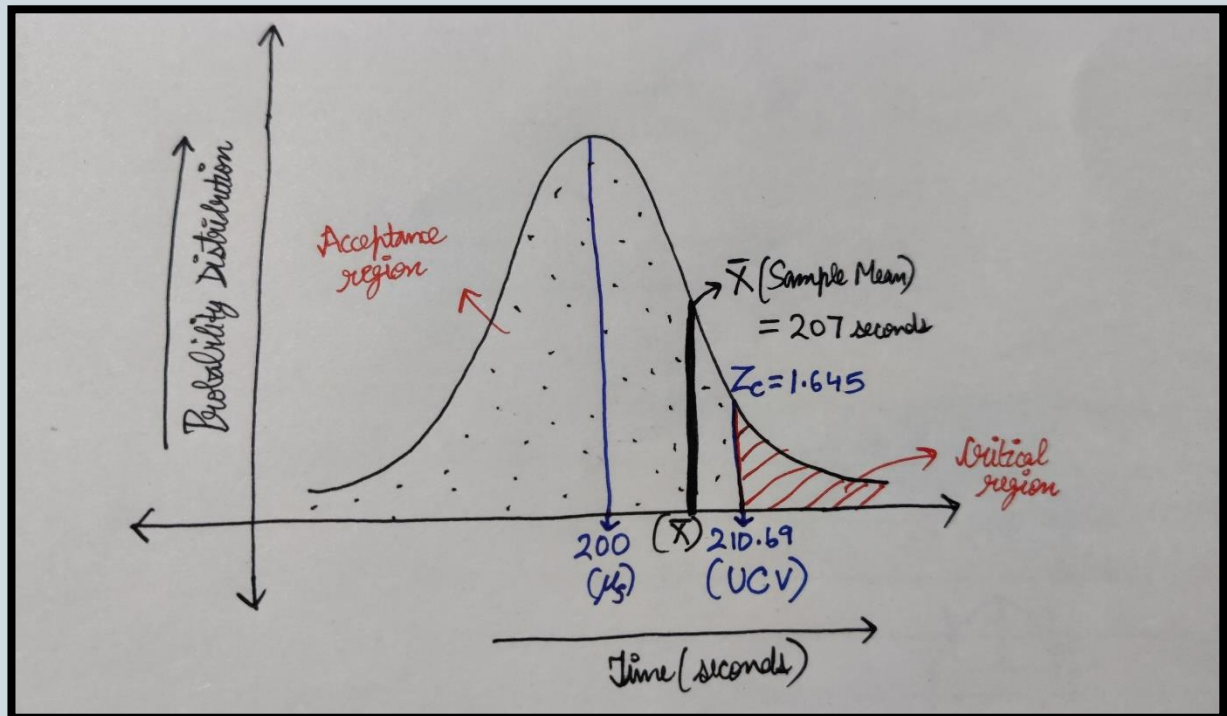 Probability Distribution
Acceptance
region
X̄ (Sample Mean)
= 207 seconds
Zc = 1.645
Critical
region
200
(μs)
(X̄)
210.69
(UCV)
Time (seconds)